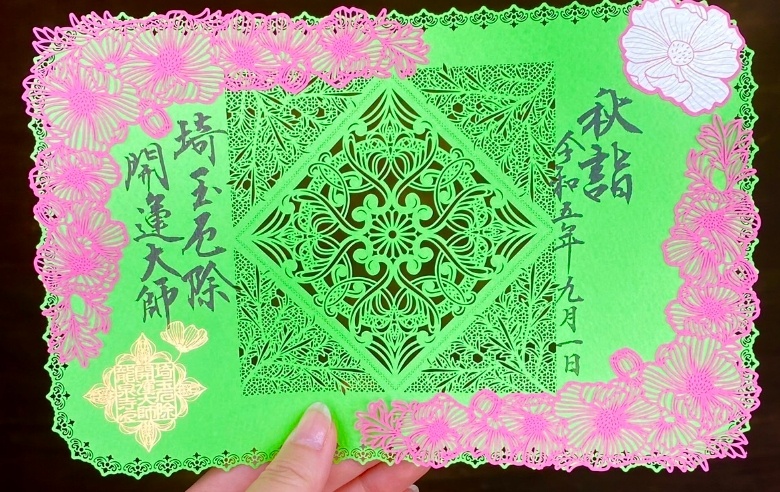 秋詣
令和五年九月一日
埼玉厄除
開運大師